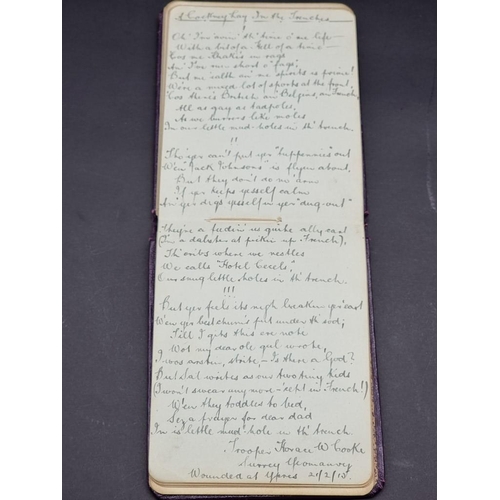 A Cockney Lay In The Trenches
I
Oh! I'm 'avin' th' time o' me life –
With a bit of a Hell of a time –
Cos me Khaki's in rags
An' I'm me short o' fags;
But me 'ealth an' me spirits is prime!
We're a mixed lot of sports at the front,
Cos there's British, an' Belgius, an' French,
All as gay as tadpoles,
As we burrows like moles
In our little mud-holes in th' trench.
II
Tho' yer can't put yer "'appennies" out
W'en "Jack Johnsons" is flyin' about,
But they don't do no 'arm
If yer keeps yesself calm
An' yer digs yesself in yer "dug-out"
They're a feedin' us quite ally cart
(I'm a dabster at pickin' up French),
Th' cribs where we nestles
We calls "Hotel Cecils",
Our snug little holes in th' trench.
III
But yer feels it's nigh breakin' yer 'eart
W'en yer best chum's put under th' sod;
Till I gits this ere note
Wot my dear ole gal wrote,
I was arskin', strite, – Is there a God?
But Sal writes as our two tiny kids
(I won't swear any more – 'cept in French!)
W'en they toddles to bed,
Sez a prayer for dear dad
In 'is little mud-hole in th' trench
Trooper Horace W Cooke
Surrey Yeomanry
Wounded at Ypres 21/2/15.